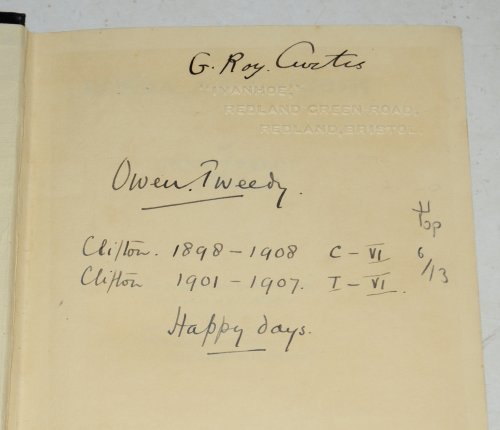 G. Roy. Curtis
"IVANHOE,"
REDLAND GREEN ROAD,
REDLAND, BRISTOL.
Owen. Tweedy.
Clifton. 1898 – 1908 C – VI
Clifton 1901 – 1907. I – VI.
6/13
Happy days.